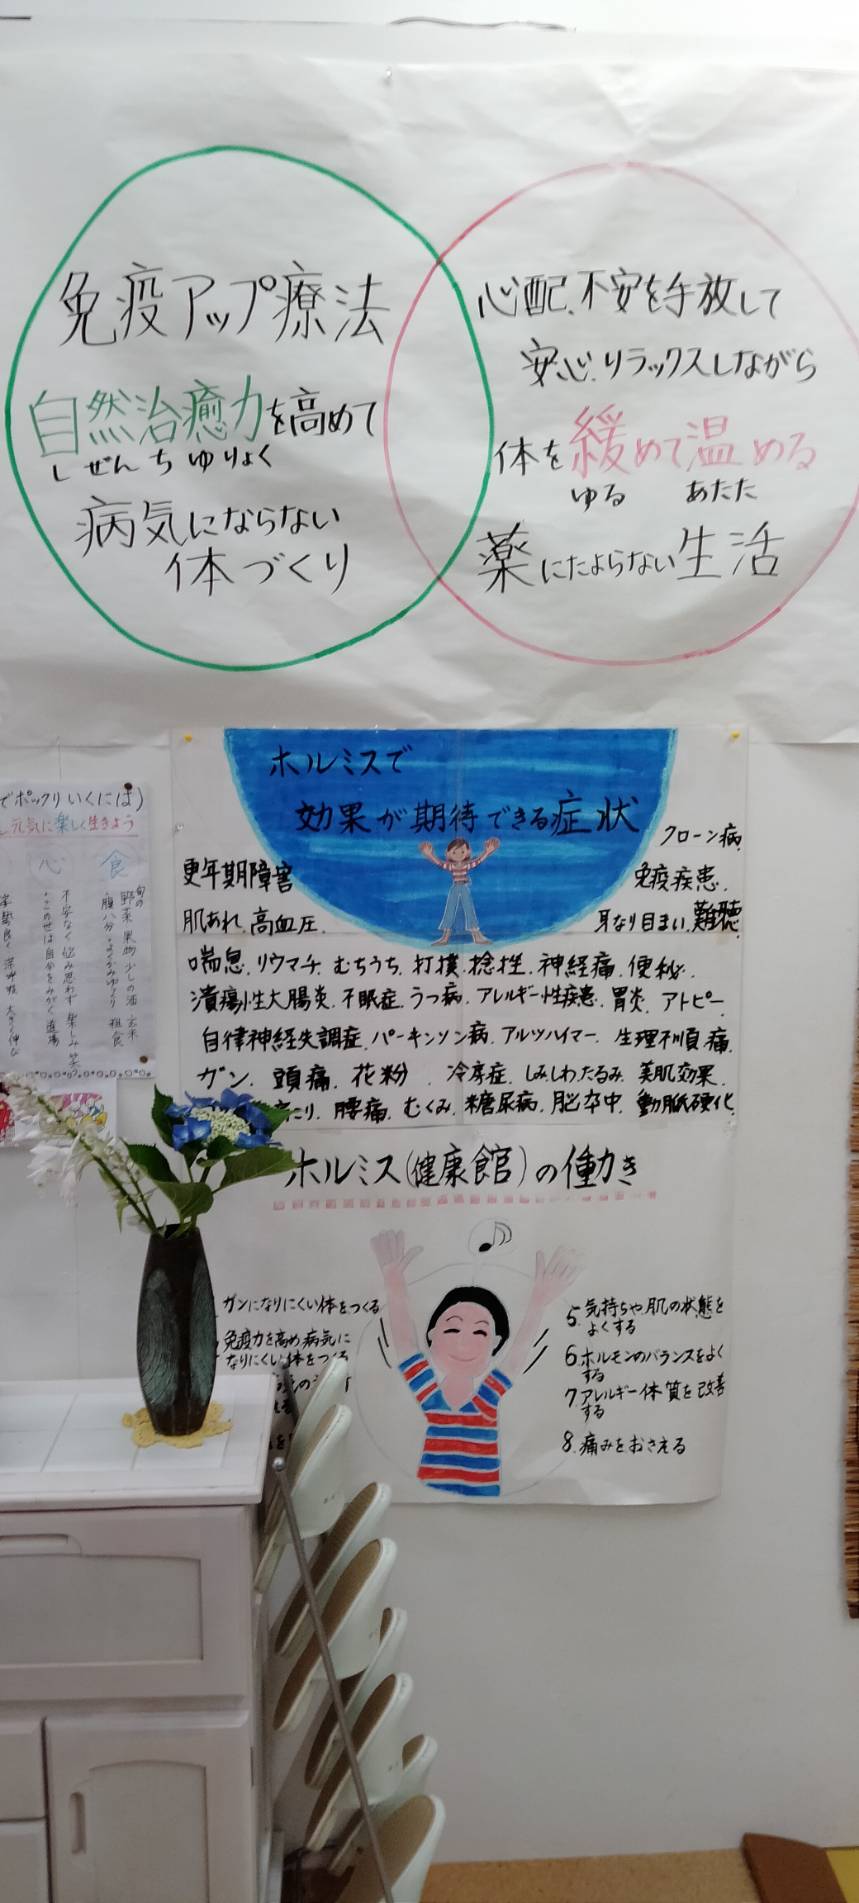 免疫アップ療法
自然治癒力を高めて
しぜんちゆりょく
病気にならない
体づくり
心配、不安を手放して
安心、リラックスしながら
体を緩めて温める
ゆる あたた
薬にたよらない生活
でポックリいくには)
元気に楽しく生きよう
心 食
旬の
野菜 果物 少しの酒 玄米
腹八分 よくかみゆっくり 粗食
不安なく 悩み思わず 楽しみ 笑
この世は自分をみがく道場
ホルミスで
効果が期待できる症状
クローン病
更年期障害
免疫疾患、
肌あれ、高血圧、
耳なり目まい、難聴
喘息、リウマチ、むちうち、打撲、捻挫、神経痛、便秘、
潰瘍性大腸炎、不眠症、うつ病、アレルギー性疾患、胃炎、アトピー
自律神経失調症、パーキンソン病、アルツハイマー、生理不順、痛、
ガン、頭痛、花粉、冷房症、しみしわたるみ、美肌効果、
こり、腰痛、むくみ、糖尿病、脳卒中、動脈硬化
ホルミス(健康館)の働き
ガンになりにくい体をつくる
免疫力を高め病気に
なりにくい体をつくる
5. 気持ちや肌の状態を
よくする
6. ホルモンのバランスをよく
する
7. アレルギー体質を改善
する
8. 痛みをおさえる